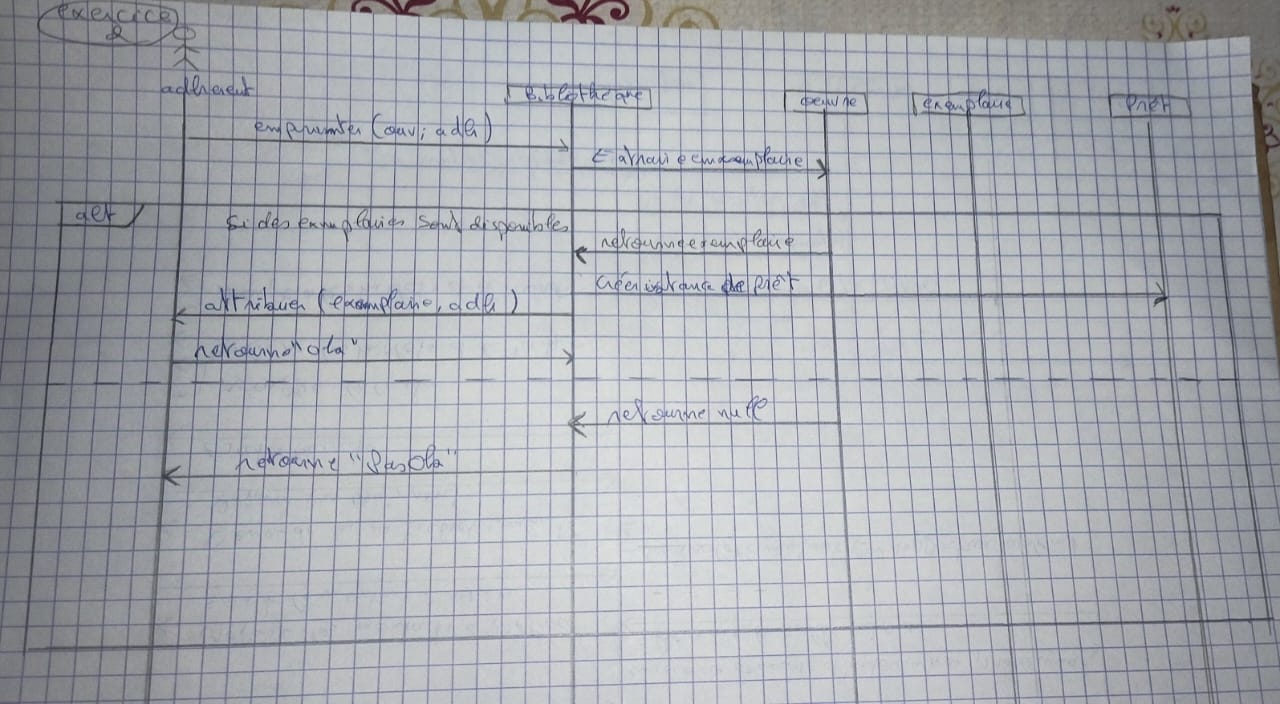 exercice
2
adherent
Bibliothéque
oeuvre
exemplaire
Prêt
emprunter (ouv; adh)
Si des exemplaires sont disponibles
retourne exemplaire
Créer instance de Prêt
attribuer (exemplaire, adh)
retourne
retourne null
retourne